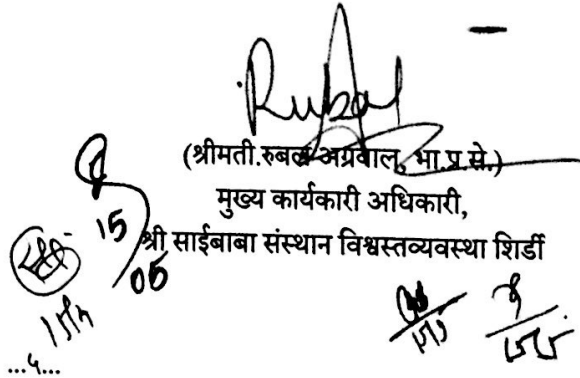 Rubal
(श्रीमती.रुबल अग्रवाल, भा.प्र.से.)
मुख्य कार्यकारी अधिकारी,
श्री साईबाबा संस्थान विश्वस्तव्यवस्था शिर्डी
15
05
...५...